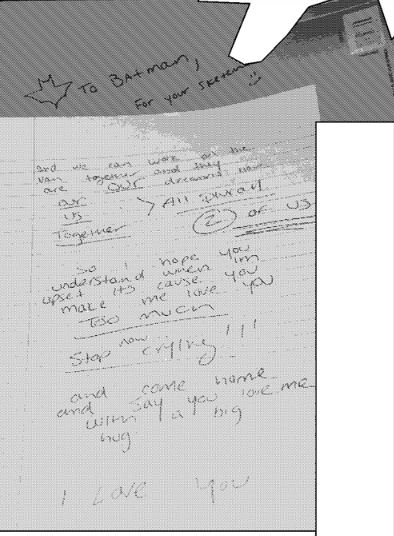 To Batman,
For your sketch
and we can work on the
van together and they
are our dreams now
> All Diway
its
Together
② of us
So I hope you
understand when im
upset its cause you
make me love you
Too much
Stop now crying!!!
and come home
and say you love me
with a big
hug
I Love you